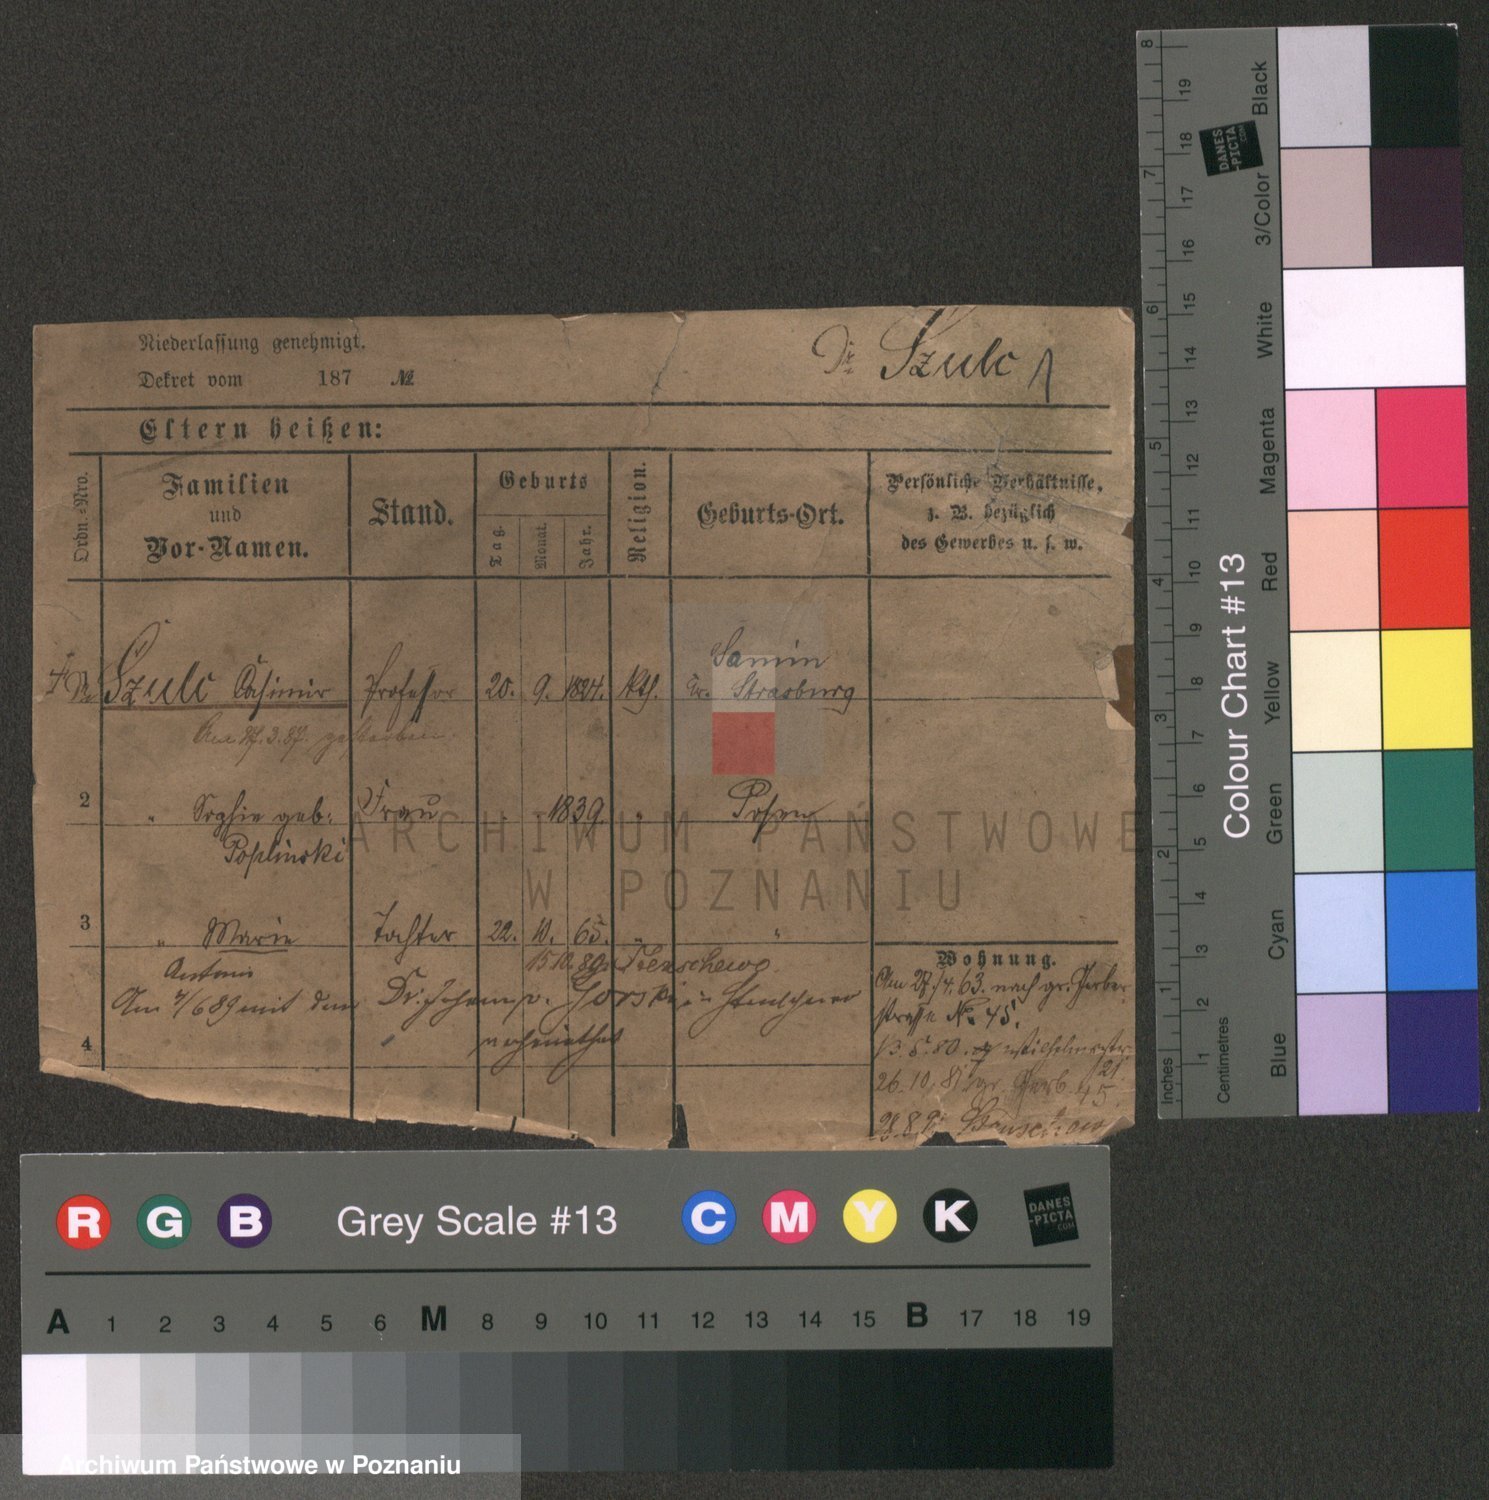 Niederlassung genehmigt.
Dekret vom 187 №
Dr. Szulc
Eltern heißen:
Ordn.-Nro.
Familien
und
Vor-Namen.
Stand.
Geburts
Tag.
Monat.
Jahr.
Religion.
Geburts-Ort.
Persönliche Verhältnisse,
z. B. bezüglich
des Gewerbes u. s. w.
Dr. Szulc Casimir Professor 20. 9. 1824. kth. Samin
Kr. Strasburg
Am 27.3.87. gestorben.
2 " Sophie geb. Frau 1839. " Posen
Poplinski
3 " Marie Tochter 22. 10. 65. " "
Antonie 15 10
Am 4/6 89 mit dem Dr. Johann v. Gorski in
verheirathet
4
Wohnung.
Am 27./4. 63. nach gr. Gerber
straße No. 45.
13. 5. 80. Wilhelmstr.
21
26. 10. 81 gr. Gerb. 45.
ARCHIWUM PAŃSTWOWE
W POZNANIU
DANES
-PICTA
.COM
Colour Chart #13
Black
3/Color
White
Magenta
Red
Yellow
Green
Cyan
Blue
8 7 6 5 4 3 2 1 Inches
19 18 17 16 15 14 13 12 11 10 9 8 7 6 5 4 3 2 1 Centimetres
R G B Grey Scale #13 C M Y K
DANES
-PICTA
.COM
A 1 2 3 4 5 6 M 8 9 10 11 12 13 14 15 B 17 18 19
Archiwum Państwowe w Poznaniu